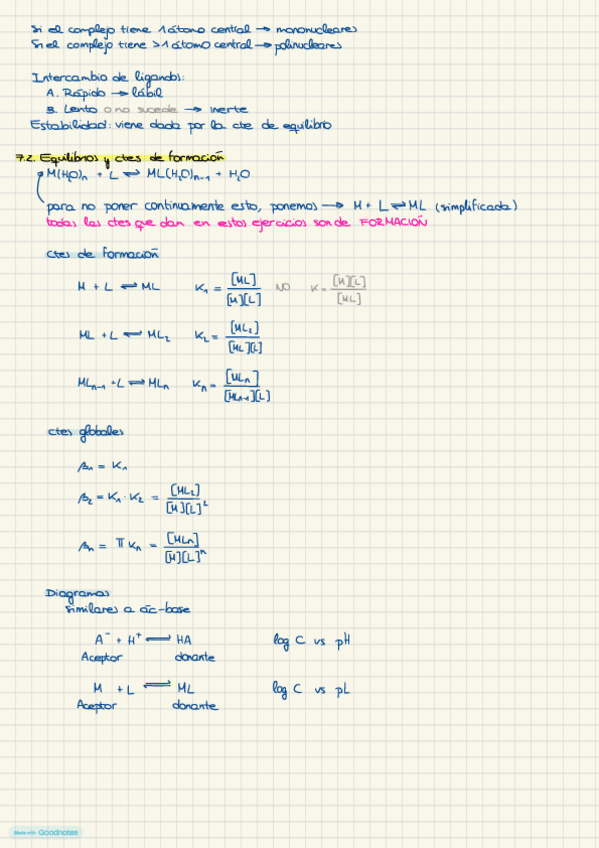 Si el complejo tiene 1 átomo central → mononucleares
Si el complejo tiene >1 átomo central → polinucleares
Intercambio de ligandos:
A. Rápido → lábil
B. Lento o no sucede → inerte
Estabilidad: viene dada por la cte de equilibrio
7.2. Equilibrios y ctes de formación
M(H₂O)ₙ + L ⇌ ML(H₂O)ₙ₋₁ + H₂O
para no poner continuamente esto, ponemos → M + L ⇌ ML (simplificada)
todas las ctes que dan en estos ejercicios son de FORMACIÓN
ctes de formación
M + L ⇌ ML K₁ = [ML] / [M][L] NO K = [M][L] / [ML]
ML + L ⇌ ML₂ K₂ = [ML₂] / [ML][L]
MLₙ₋₁ + L ⇌ MLₙ Kₙ = [MLₙ] / [MLₙ₋₁][L]
ctes globales
β₁ = K₁
β₂ = K₁ · K₂ = [ML₂] / [M][L]²
βₙ = π Kₙ = [MLₙ] / [M][L]ⁿ
Diagramas
similares a ác-base
A⁻ + H⁺ ⇌ HA log C vs pH
Aceptor donante
M + L ⇌ ML log C vs pL
Aceptor donante
Made with Goodnotes